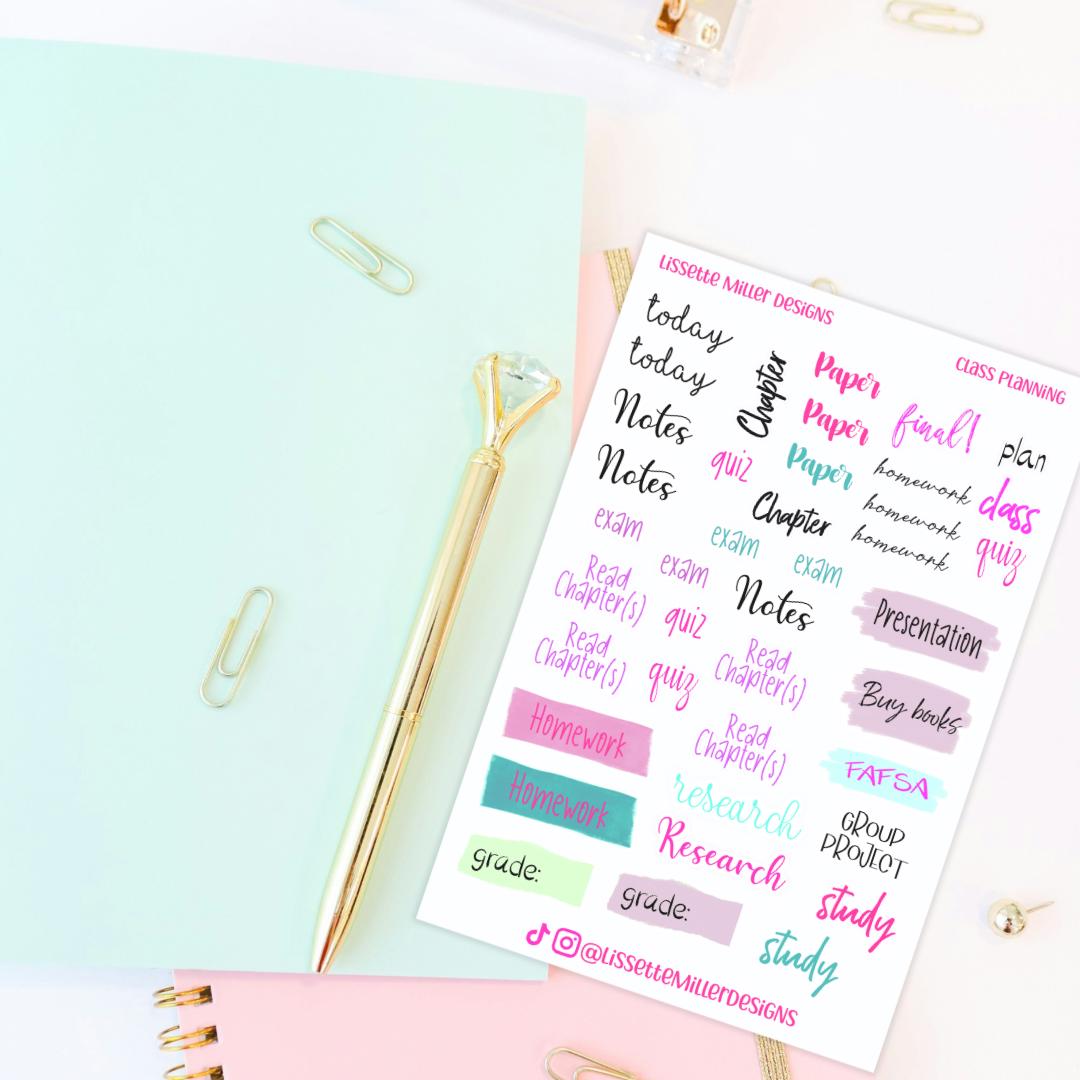 Lissette Miller Designs
Class Planning
today
today
Notes
Notes
Chapter
Paper
Paper
Paper
final!
plan
quiz
homework
homework
homework
class
quiz
Chapter
exam
exam
exam
exam
Read
Chapter(s)
quiz
Notes
Presentation
Read
Chapter(s)
quiz
Read
Chapter(s)
Buy books
Homework
Read
Chapter(s)
FAFSA
Homework
research
GROUP
PROJECT
Research
grade:
grade:
study
study
@LissetteMillerDesigns